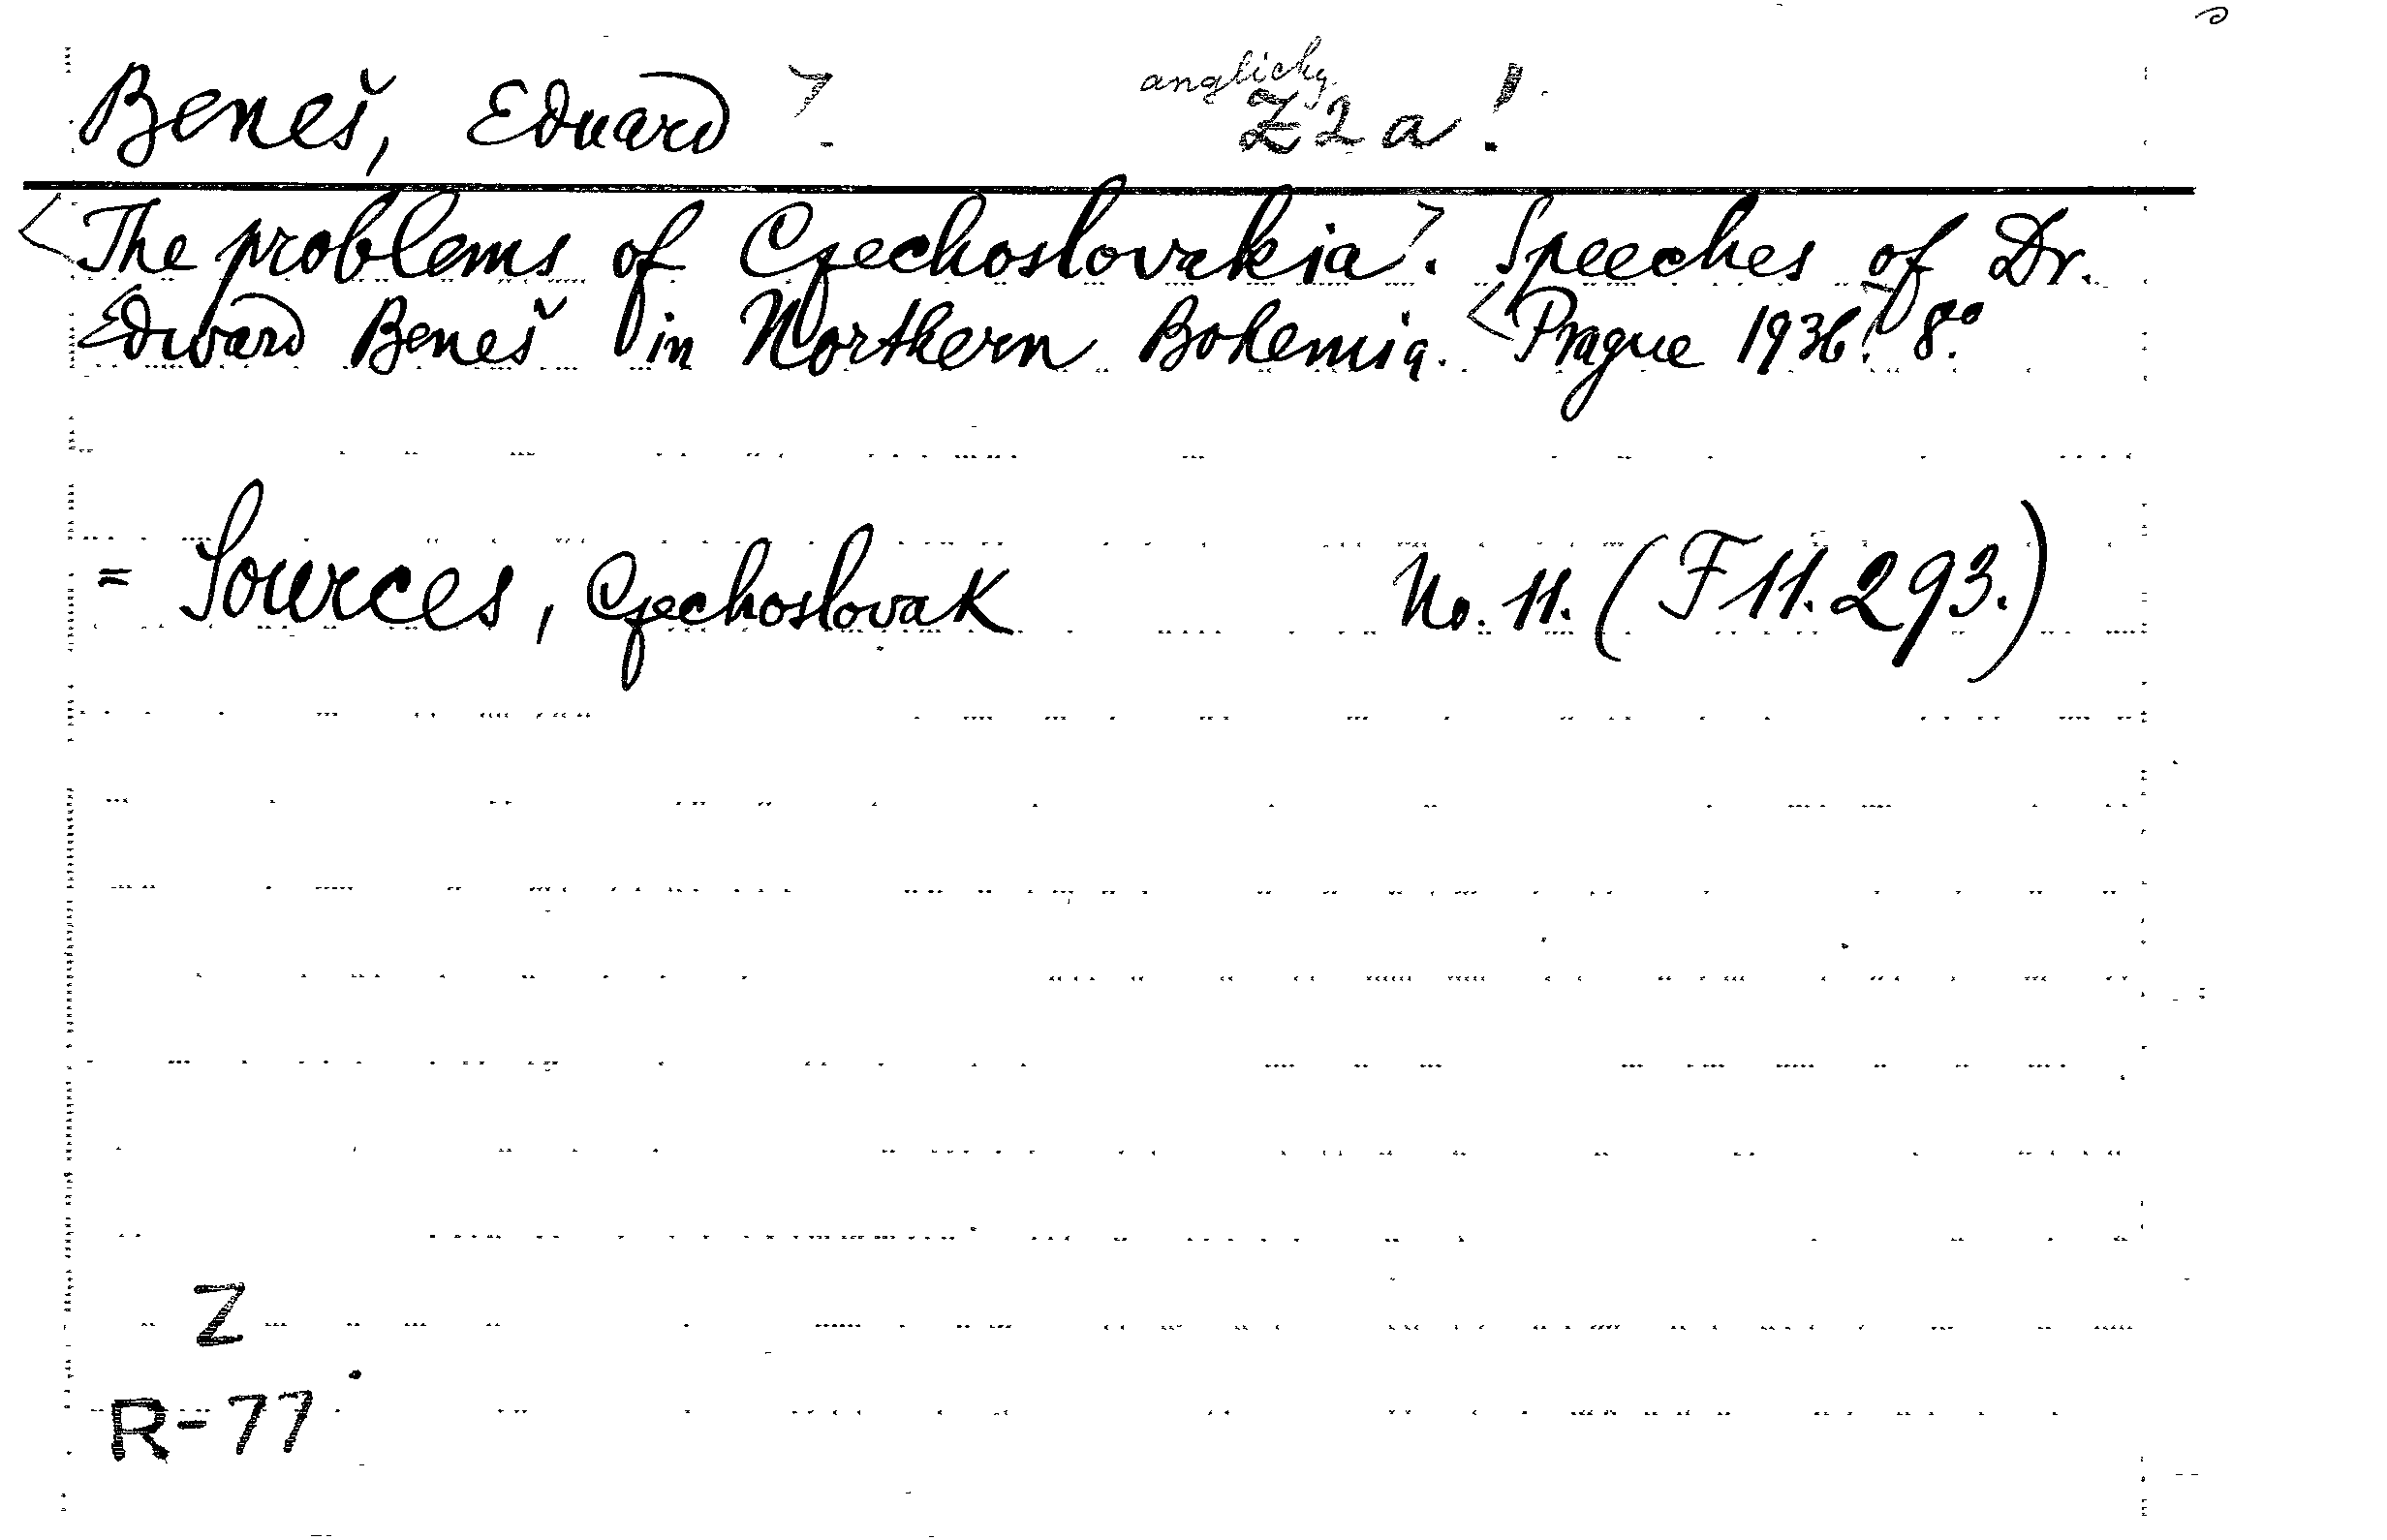 anglicky
Beneš, Eduard > Z2a!
<The problems of Czechoslovakia>. Speeches of Dr.
Edward Beneš in Northern Bohemia. <Prague 1936.> 8°.
= Sources, Czechoslovak No. 11. (F 11.293.)
Z
R-77